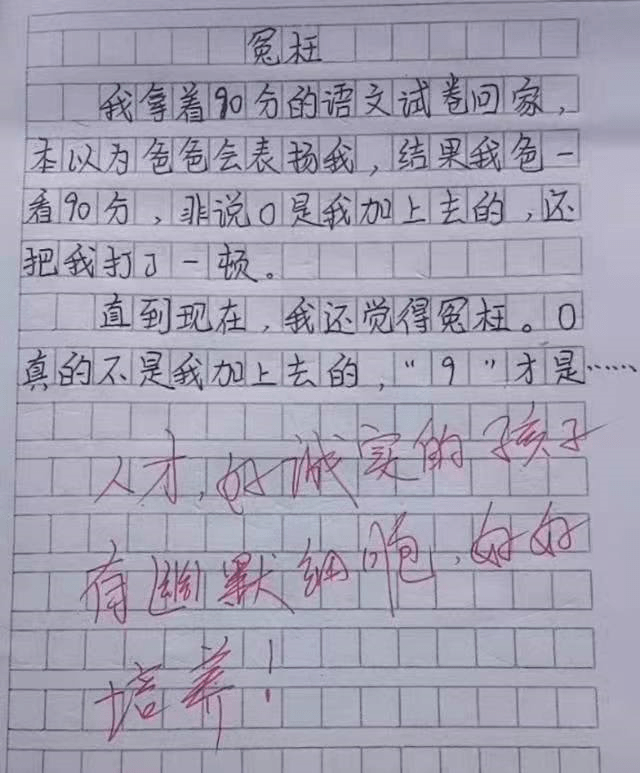 冤枉
我拿着90分的语文试卷回家，
本以为爸爸会表扬我，结果我爸一
看90分，非说0是我加上去的，还
把我打了一顿。
直到现在，我还觉得冤枉。0
真的不是我加上去的，“9”才是……
人才，好诚实的孩子
有幽默细胞，好好
培养！